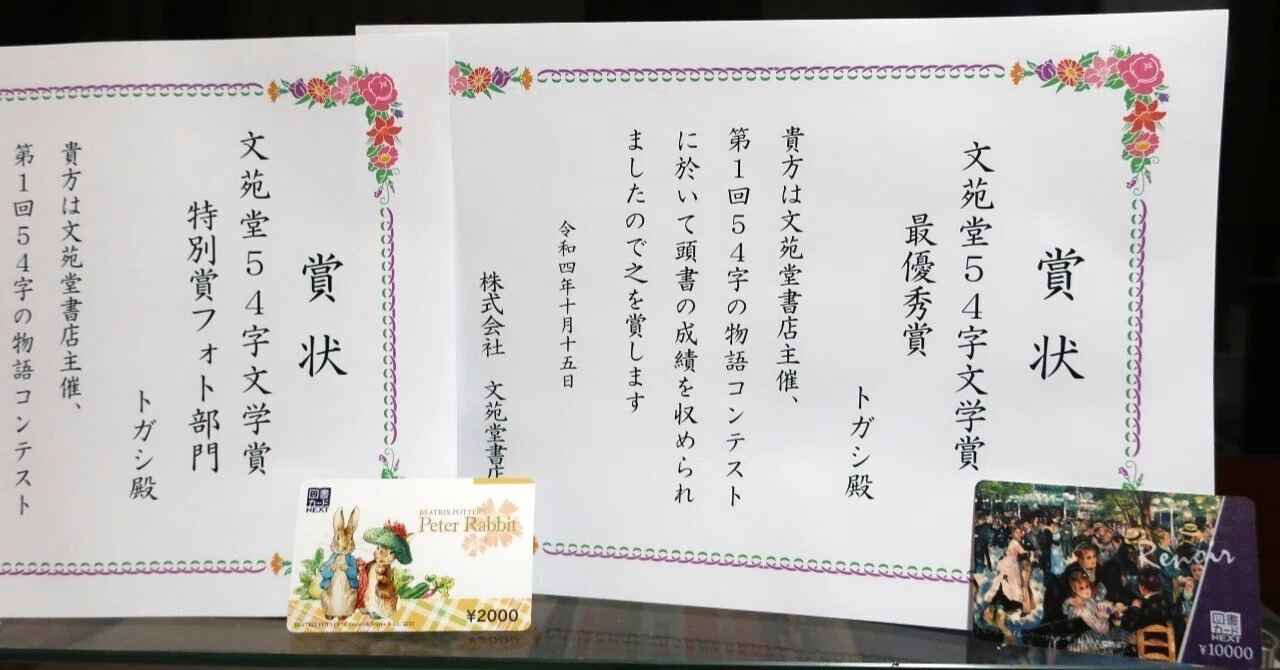 賞状
文苑堂54字文学賞
最優秀賞
トガシ殿
貴方は文苑堂書店主催、
第1回54字の物語コンテスト
に於いて頭書の成績を収められ
ましたので之を賞します
令和四年十月十五日
株式会社 文苑堂書店
賞状
文苑堂54字文学賞
特別賞フォト部門
トガシ殿
貴方は文苑堂書店主催、
第1回54字の物語コンテスト
図書
カード
NEXT
BEATRIX POTTER
Peter Rabbit
¥2000
Renoir
図書
カード
NEXT
¥10000